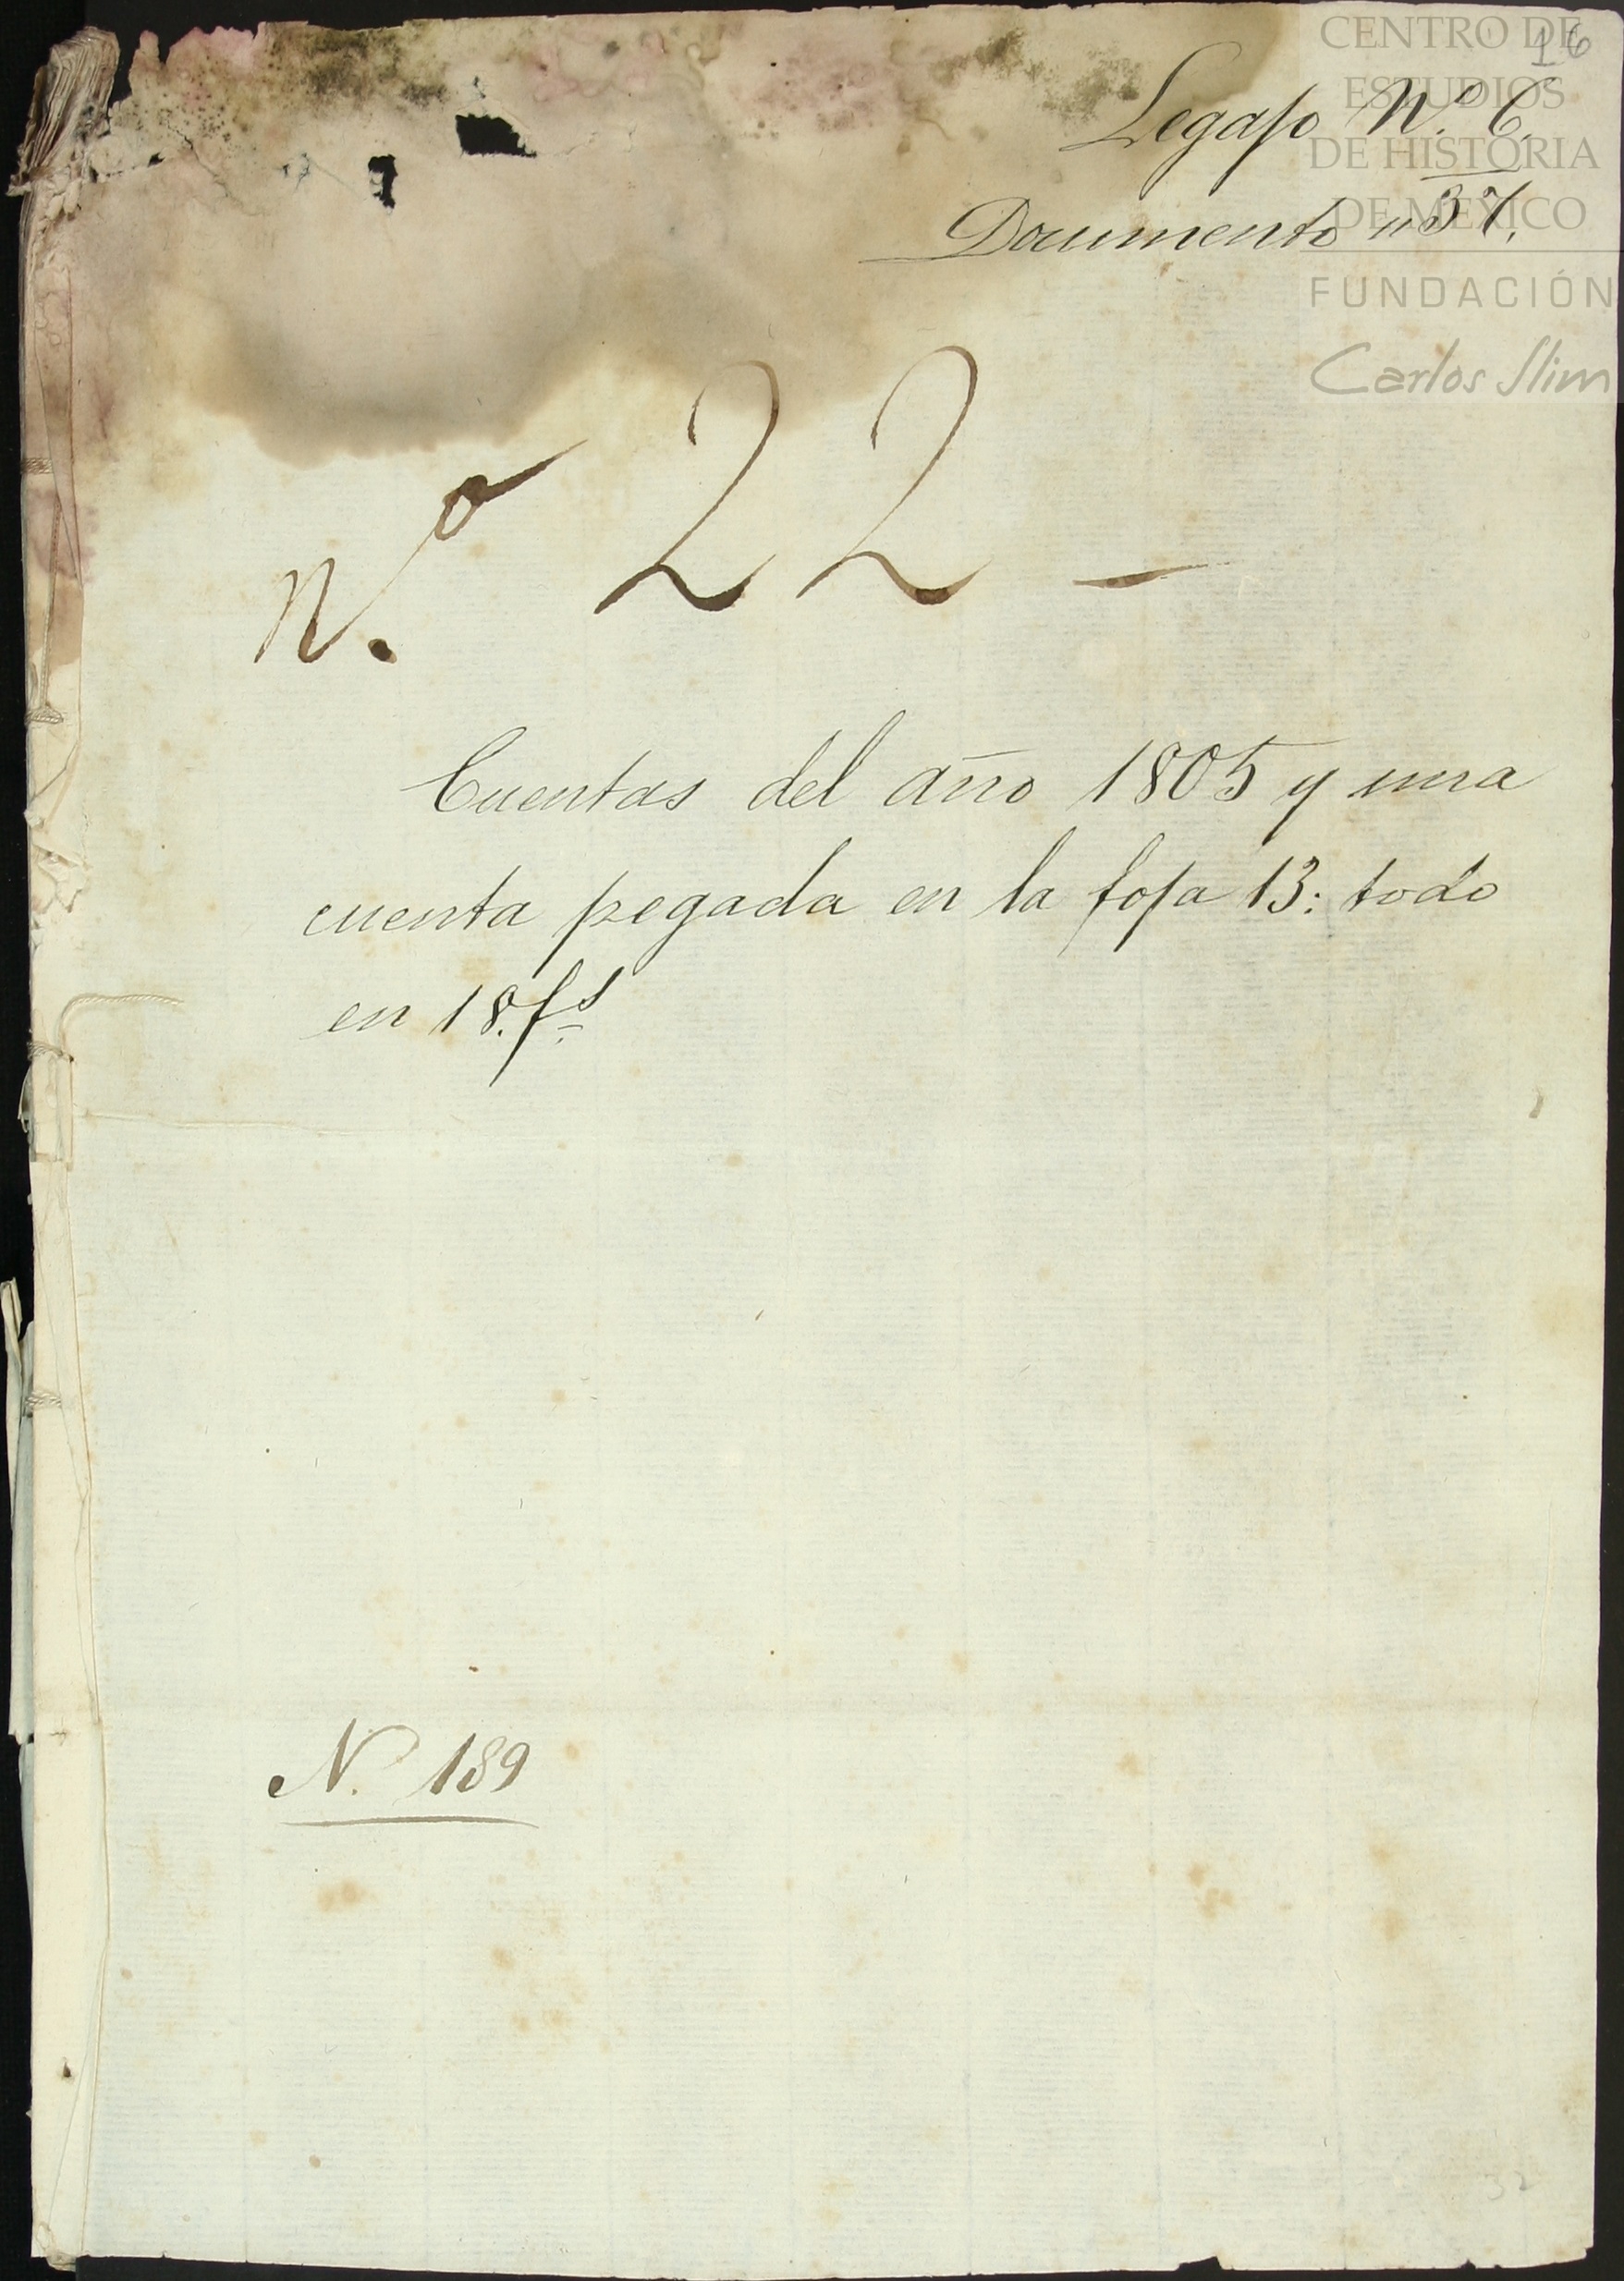 16
Legajo N.º 6.
Documento " 37.
CENTRO DE
ESTUDIOS
DE HISTORIA
DE MÉXICO
FUNDACIÓN
Carlos Slim
N.º 22 —
Cuentas del año 1805 y una
cuenta pegada en la foja 13: todo
en 18. fs
N. 189
32